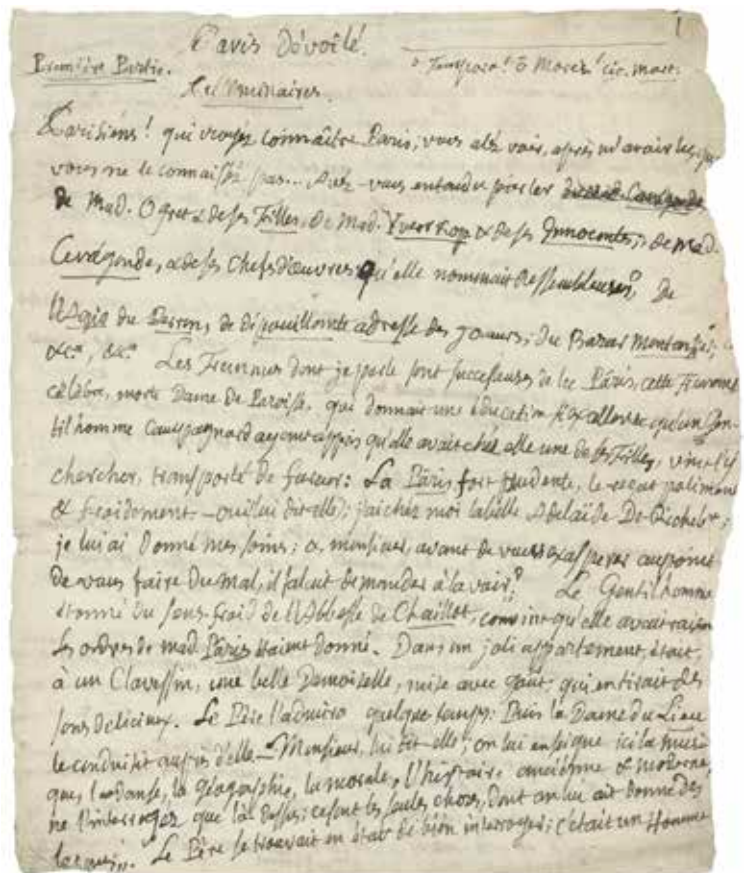 1
Paris Dévoilé.
Première Partie.
ô Tempora! ô Mores! Cic. Mart.
Préliminaires.
Parisiéns! qui croyez connaître Paris; vous aléz voir, après m'avoir lu, que
vous ne le connaissez pas... Avez-vous entendu parler
de Mad. Ogret & de ses Filles, de Mad. & de ses Innocentes; de Mad.
Cunégonde, & de ses Chefs d'œuvres qu'elle nommait Ressembleuses? De
du Perron, de dépouillante adresse des joueurs; du Bazar
&c.ª, &c.ª Les Femmes dont je parle sont successeuses de la Pâris, cette Femme
célèbre, morte Dame de Paroisse, qui donnait une éducation si excellente qu'un Gen-
tilhomme Campagnard ayant appris qu'elle avait chéz elle une de ses Filles, vint l'y
chercher, transporté de fureur: La Pâris fort prudente, le reçut poliment
& fraidement — oui (lui dit-elle); j'ai chéz moi la belle Adelaïde De
je lui ai donné mes soins; &, monsieur, avant de vous exasperer au point
de vous faire du mal, il falait demander à la voir? Le Gentilhomme
étonné du sens-fraid de l'Abbesse de Chaillot, convint qu'elle avait raison
Les ordres de mad Pâris étaient donné. Dans un joli appartement, était,
à un Clavessin, une belle Demoiselle, mise avec goût, qui en tirait des
sons delicieux. Le Père l'admira quelque temps: Puis la Dame du Lieu
le conduisit auprès d'elle — Monsieur, lui dit-elle; on lui enseigne ici la musi-
que, la danse, la géographie, la morale, l'histoire anciènne & moderne;
ne l'interrogez que là dessus; ce sont les seules choses, dont on lui ait donné des
leçons.. Le Père se trouvait en état de bién interroger; c'était un Homme